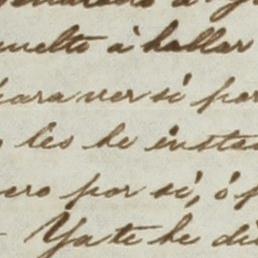 vuelto á hablar
para ver si por
les he insta
pero por si, ó p
Ya te he di